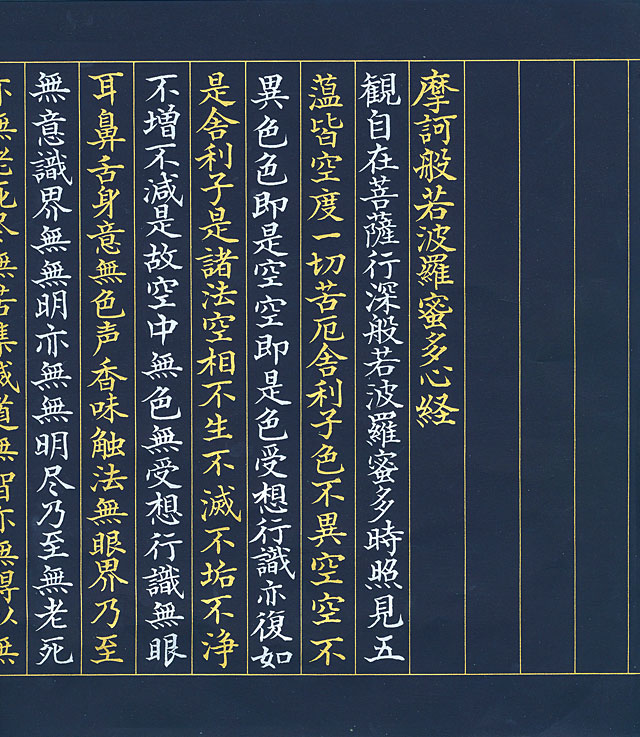 摩訶般若波羅蜜多心経
観自在菩薩行深般若波羅蜜多時照見五
薀皆空度一切苦厄舎利子色不異空空不
異色色即是空空即是色受想行識亦復如
是舎利子是諸法空相不生不滅不垢不浄
不増不減是故空中無色無受想行識無眼
耳鼻舌身意無色声香味触法無眼界乃至
無意識界無無明亦無無明尽乃至無老死
亦無老死尽無苦集滅道無智亦無得以無